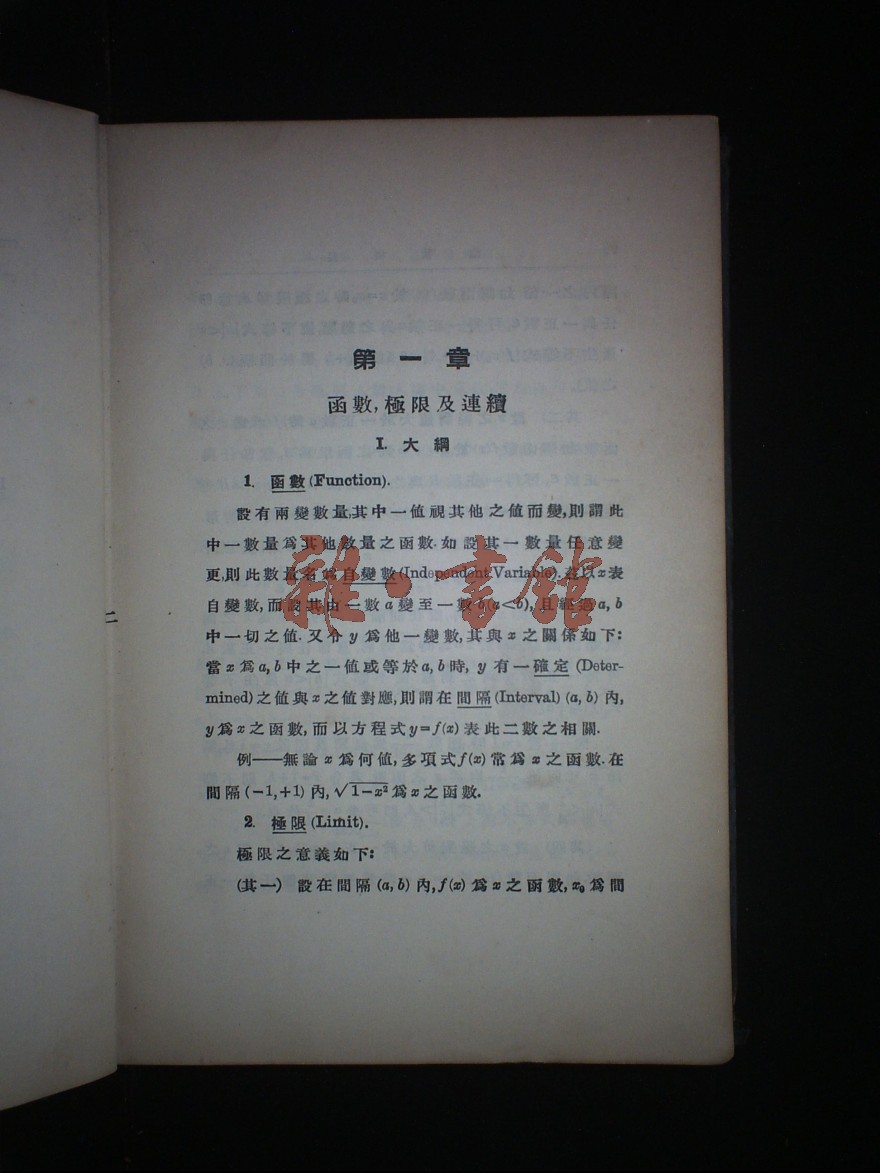 第一章
函數,極限及連續
I. 大綱
1. 函數 (Function).
設有兩變數量,其中一值視其他之值而變,則謂此
中一數量爲其他數量之函數.如設其一數量任意變
更,則此數量名爲自變數(Independent Variable).茲以x表
自變數,而設其由一數a變至一數b(a<b),且經過a,b
中一切之值.又令y爲他一變數,其與x之關係如下:
當x爲a,b中之一值或等於a,b時,y有一確定(Deter-
mined)之值與x之值對應,則謂在間隔(Interval)(a,b)內,
y爲x之函數,而以方程式y=f(x)表此二數之相關.
例——無論x爲何值,多項式f(x)常爲x之函數.在
間隔(-1,+1)內,√1-x²爲x之函數.
2. 極限 (Limit).
極限之意義如下:
(其一) 設在間隔(a,b)內,f(x)爲x之函數,x₀爲間
雜·書館